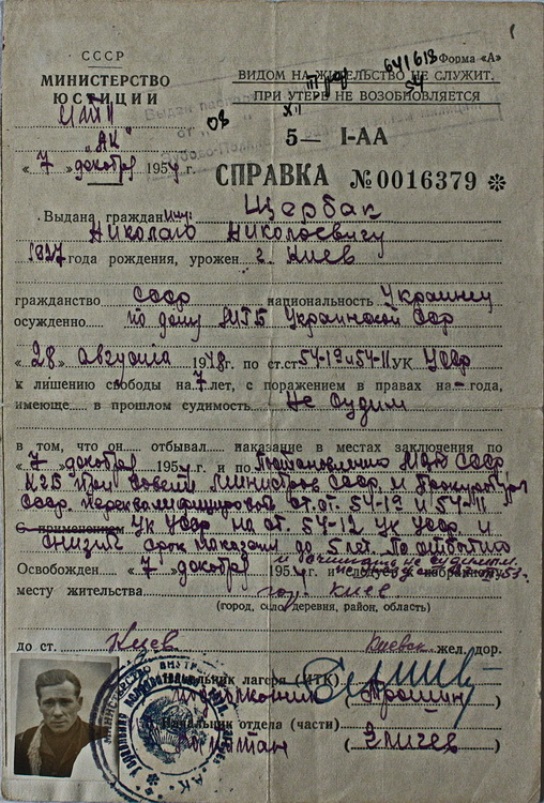 СССР
МИНИСТЕРСТВО
ЮСТИЦИИ
641618 Форма «А»
ВИДОМ НА ЖИТЕЛЬСТВО НЕ СЛУЖИТ.
ПРИ УТЕРЕ НЕ ВОЗОБНОВЛЯЕТСЯ
08 XII 54
"АК"
5— I-АА
« 7 » декабря 1954 г.
СПРАВКА № 0016379 ✻
Выдана гражданину: Щербак
Николаю Николаевичу
1927 года рождения, урожен г. Киев
гражданство СССР национальность Украинец
осужденно по делу МГБ Украинской ССР
« 28 » Августа 1948 г. по ст.ст. 54-1а и 54-11 УК УССР
к лишению свободы на 7 лет, с поражением в правах на - года,
имеюще в прошлом судимость Не судим
в том, что он отбывал наказание в местах заключения по
« 7 » декабря 1954 г. и по Постановлению МВД СССР
КГБ при Совете Министров СССР и Прокуратура
СССР ст. ст. 54-1а и 54-11
С применением УК УССР на ст. 54-12 УК УССР и
снизить срок наказания до 5 лет. По отбытию
и считать не судимым.
Освобожден « 7 » декабря 1954 г. и следует к избранному
месту жительства гор. Киев
(город, село, деревня, район, область)
до ст. Киев Киевск. жел. дор.
Начальник лагеря (ИТК)
подполковник ( Трошин )
Начальник отдела (части)
Капитан ( )